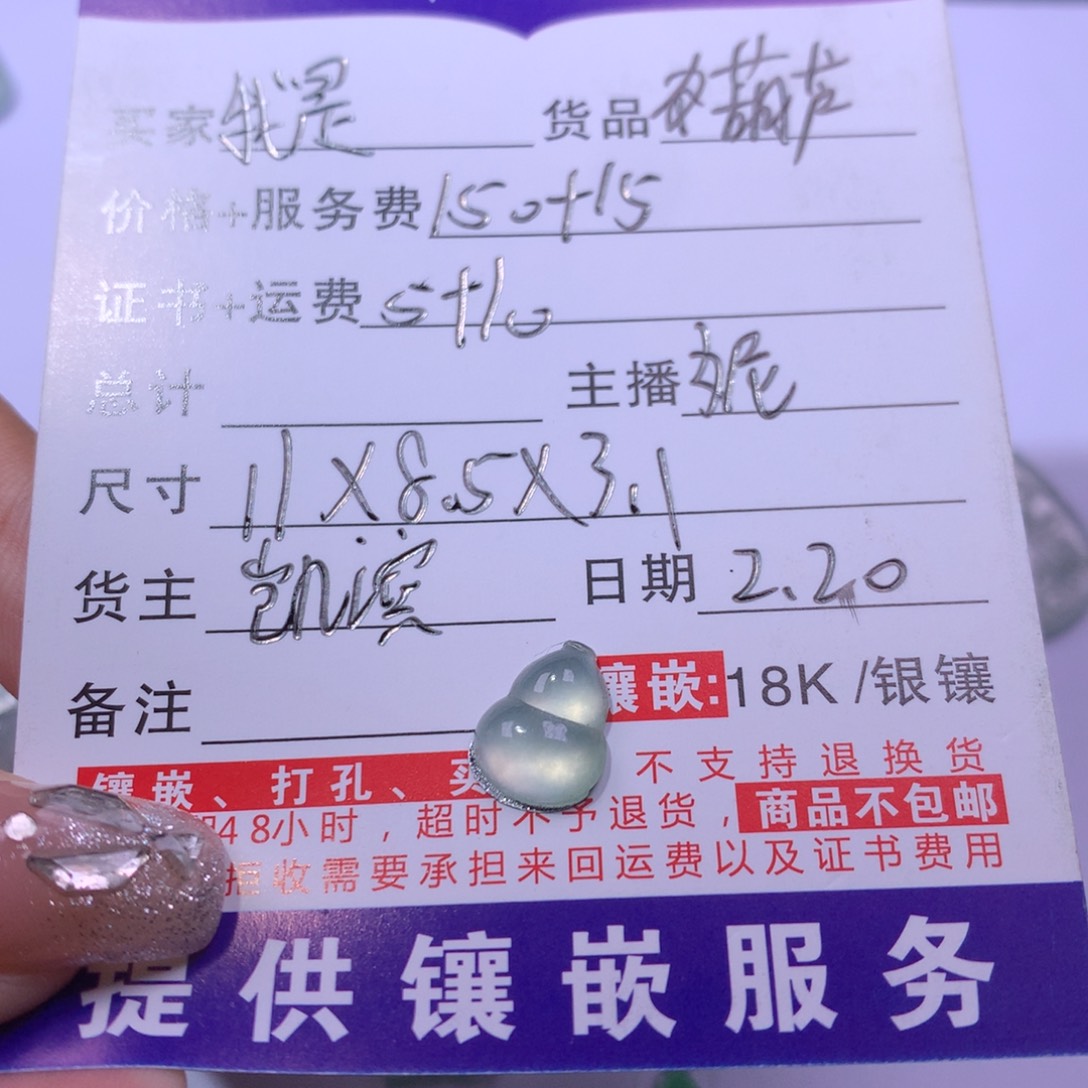 买家 我是 货品 葫芦
价格+服务费 150+15
证书+运费 5+10
总计 主播 妮
尺寸 11×8.5×3.1
货主 凯滨 日期 2.20
备注 镶嵌:18K/银镶
镶嵌、打孔、 不支持退换货
48小时，超时不予退货，商品不包邮
拒收需要承担来回运费以及证书费用
提供镶嵌服务